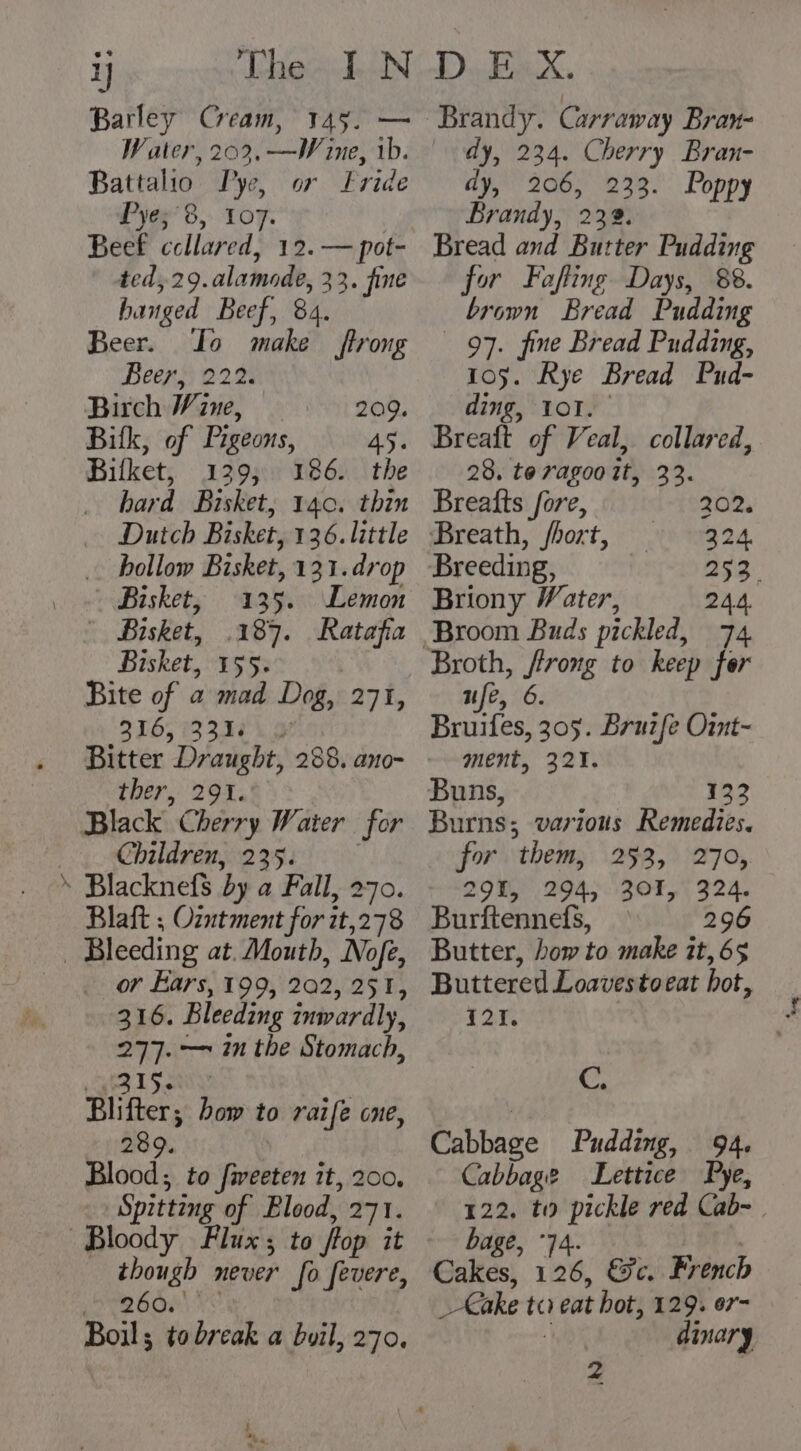 ij The INDEX.
Barley Cream, 145. —
Water, 203.—Wine, ib.
Battalio Pye, or Bride
Pye, 8, 107.
Beef collared, 12. — pot-
ted, 29. alamode, 33. fine
hanged Beef, 84.
Beer. To make ſtrong
Beer, 222.
Birch Wine, 209.
Biſk, of Pigeons, 45.
Biſket, 139, 186. the
hard Bisket, 140. thin
Dutch Bisket, 136. little
hollow Bisket, 131. drop
Bisket, 135. Lemon
Bisket, 187. Ratafia
Bisket, 155.
Bite of a mad Dog, 271,
316, 331.
Bitter Draught, 288. ano-
ther, 291.
Black Cherry Water for
Children, 235.
Blackneſs by a Fall, 270.
Blaſt; Ointment for it, 278
Bleeding at Mouth, Noſe,
or Ears, 199, 202, 251,
316. Bleeding inwardly,
277. — in the Stomach,
315.
Bliſter; how to raiſe one,
289.
Blood; to ſweeten it, 200.
Spitting of Blood, 271.
Bloody Flux; to ſtop it
though never ſo ſevere,
260.
Boil; to break a boil, 270.
Brandy. Carraway Bran-
dy, 234. Cherry Bran-
dy, 206, 233. Poppy
Brandy, 232.
Bread and Butter Pudding
for Faſting Days, 88.
brown Bread Pudding
97. fine Bread Pudding,
105. Rye Bread Pud-
ding, 101.
Breaſt of Veal, collared,
28. to ragoo it, 33.
Breaſts ſore, 302.
Breath, ſhort, 324
Breeding, 253.
Briony Water, 244
Broom Buds pickled, 74
Broth, ſtrong to keep for
uſe, 6.
Bruiſes, 305. Bruiſe Oint-
ment, 321.
Buns, 133
Burns; various Remedies.
for them, 253, 270,
291, 294, 301, 324.
Burſtenneſs, 296
Butter, how to make it, 65
Buttered Loaves to eat hot,
121.
C.
Cabbage Pudding, 94.
Cabbage Lettice Pye,
122. to pickle red Cab-
bage, 74.
Cakes, 126, &c. French
Cake to eat hot, 129. or-
dinary
2